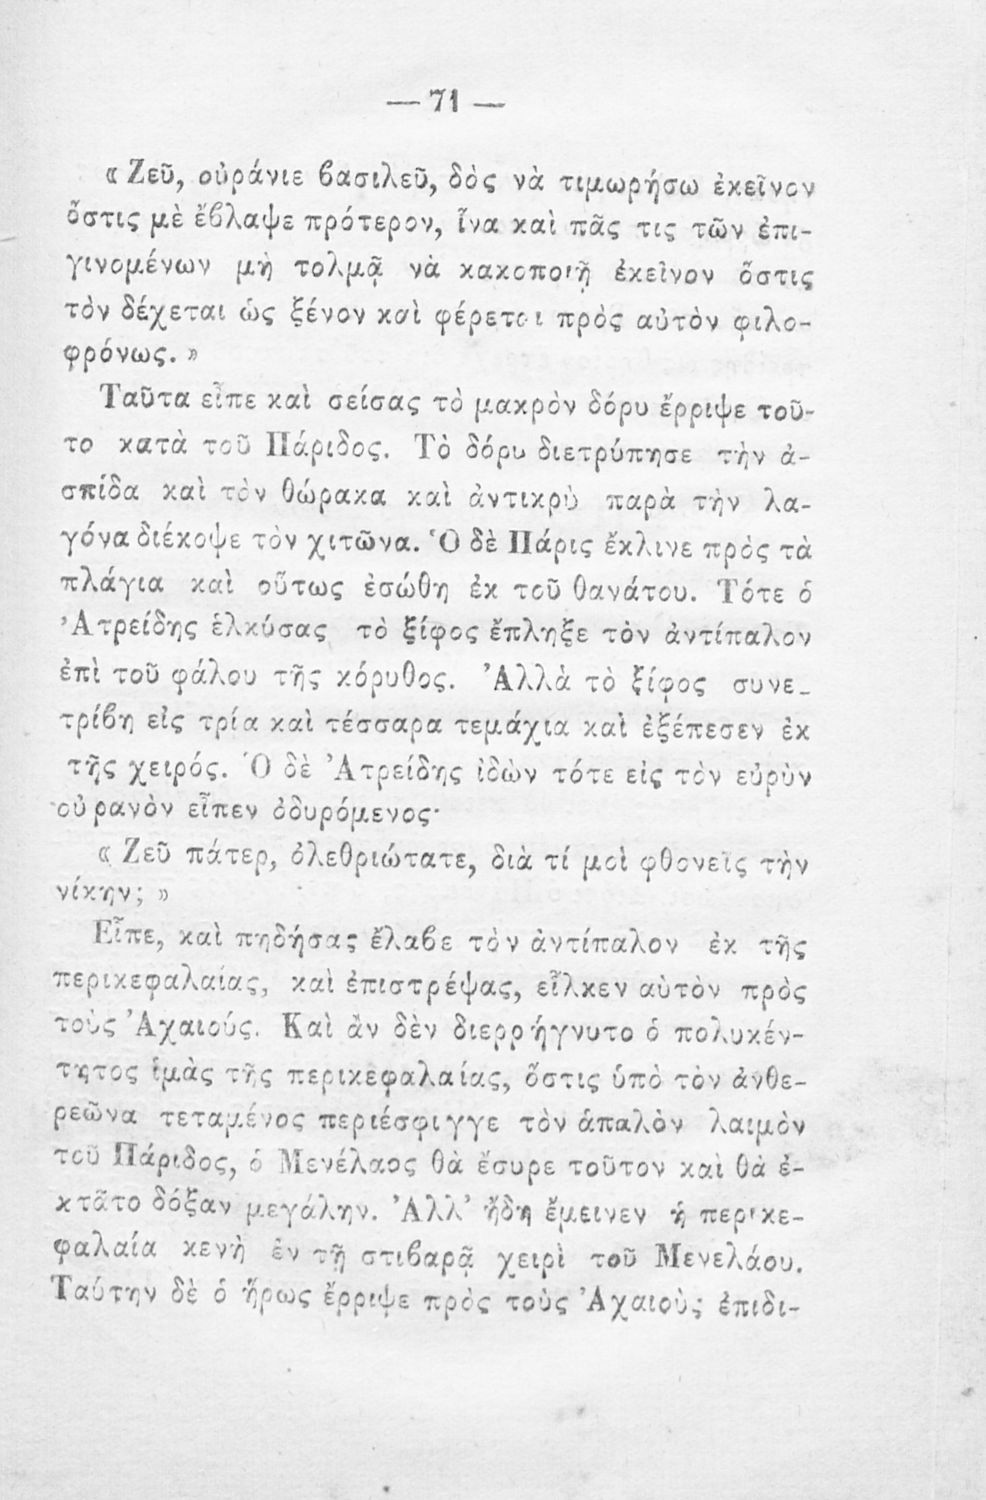 — 71 —
« Ζεῦ, οὐράνιε βασιλεῦ, δὸς νὰ τιμωρήσω ἐκεῖνον
ὅστις μὲ ἔβλαψε πρότερον, ἵνα καὶ πᾶς τις τῶν ἐπι-
γινομένων μὴ τολμᾷ νὰ κακοποιῇ ἐκεῖνον ὅστις
τὸν δέχεται ὡς ξένον καὶ φέρεται πρὸς αὐτὸν φιλο-
φρόνως. »
Ταῦτα εἶπε καὶ σείσας τὸ μακρὸν δόρυ ἔρριψε τοῦ-
το κατὰ τοῦ Πάριδος. Τὸ δόρυ διετρύπησε τὴν ἀ-
σπίδα καὶ τὸν θώρακα καὶ ἀντικρὺ παρὰ τὴν λα-
γόνα διέκοψε τὸν χιτῶνα. Ὁ δὲ Πάρις ἔκλινε πρὸς τὰ
πλάγια καὶ οὕτως ἐσώθη ἐκ τοῦ θανάτου. Τότε ὁ
Ἀτρείδης ἑλκύσας τὸ ξίφος ἔπληξε τὸν ἀντίπαλον
ἐπὶ τοῦ φάλου τῆς κόρυθος. Ἀλλὰ τὸ ξίφος συνε-
τρίβη εἰς τρία καὶ τέσσαρα τεμάχια καὶ ἐξέπεσεν ἐκ
τῆς χειρός. Ὁ δὲ Ἀτρείδης ἰδὼν τότε εἰς τὸν εὐρὺν
οὐρανὸν εἶπεν ὀδυρόμενος·
« Ζεῦ πάτερ, ὀλεθριώτατε, διὰ τί μοὶ φθονεῖς τὴν
νίκην; »
Εἶπε, καὶ πηδήσας ἔλαβε τὸν ἀντίπαλον ἐκ τῆς
περικεφαλαίας, καὶ ἐπιστρέψας, εἷλκεν αὐτὸν πρὸς
τοὺς Ἀχαιούς. Καὶ ἂν δὲν διερρήγνυτο ὁ πολυκέν-
τητος ἱμὰς τῆς περικεφαλαίας, ὅστις ὑπὸ τὸν ἀνθε-
ρεῶνα τεταμένος περιέσφιγγε τὸν ἁπαλὸν λαιμὸν
τοῦ Πάριδος, ὁ Μενέλαος θὰ ἔσυρε τοῦτον καὶ θὰ ἐ-
κτᾶτο δόξαν μεγάλην. Ἀλλ' ἤδη ἔμεινεν ἡ περικε-
φαλαία κενὴ ἐν τῇ στιβαρᾷ χειρὶ τοῦ Μενελάου.
Ταύτην δὲ ὁ ἥρως ἔρριψε πρὸς τοὺς Ἀχαιοὺς ἐπιδι-